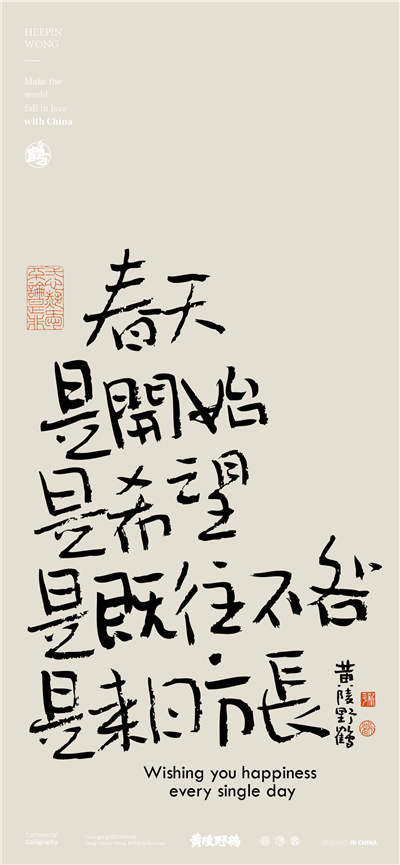 HEEPIN
WONG
Make the
world
fall in love
with China
鶴
春天
是開始
是希望
是既往不咎
是来日方長
黄陵野鶴
Wishing you happiness
every single day
Calligraphy
黄陵野鹤
IN CHINA